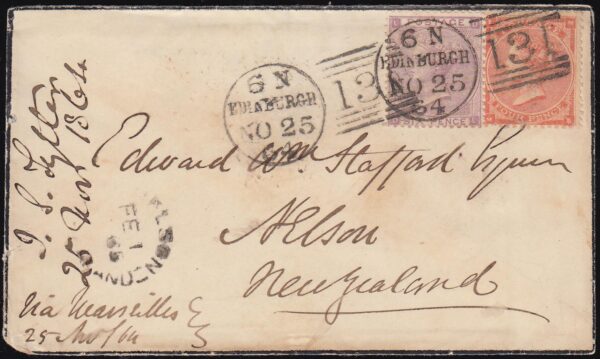 POSTAGE
SIX PENCE
FOUR PENCE
6 N
EDINBURGH
NO 25
64
131
6 N
EDINBURGH
NO 25
64
131
Edward Wm Stafford Esquire
Nelson
New Zealand
via Marseilles
25 Nov/64
25 Nov 1864
FE 1
65